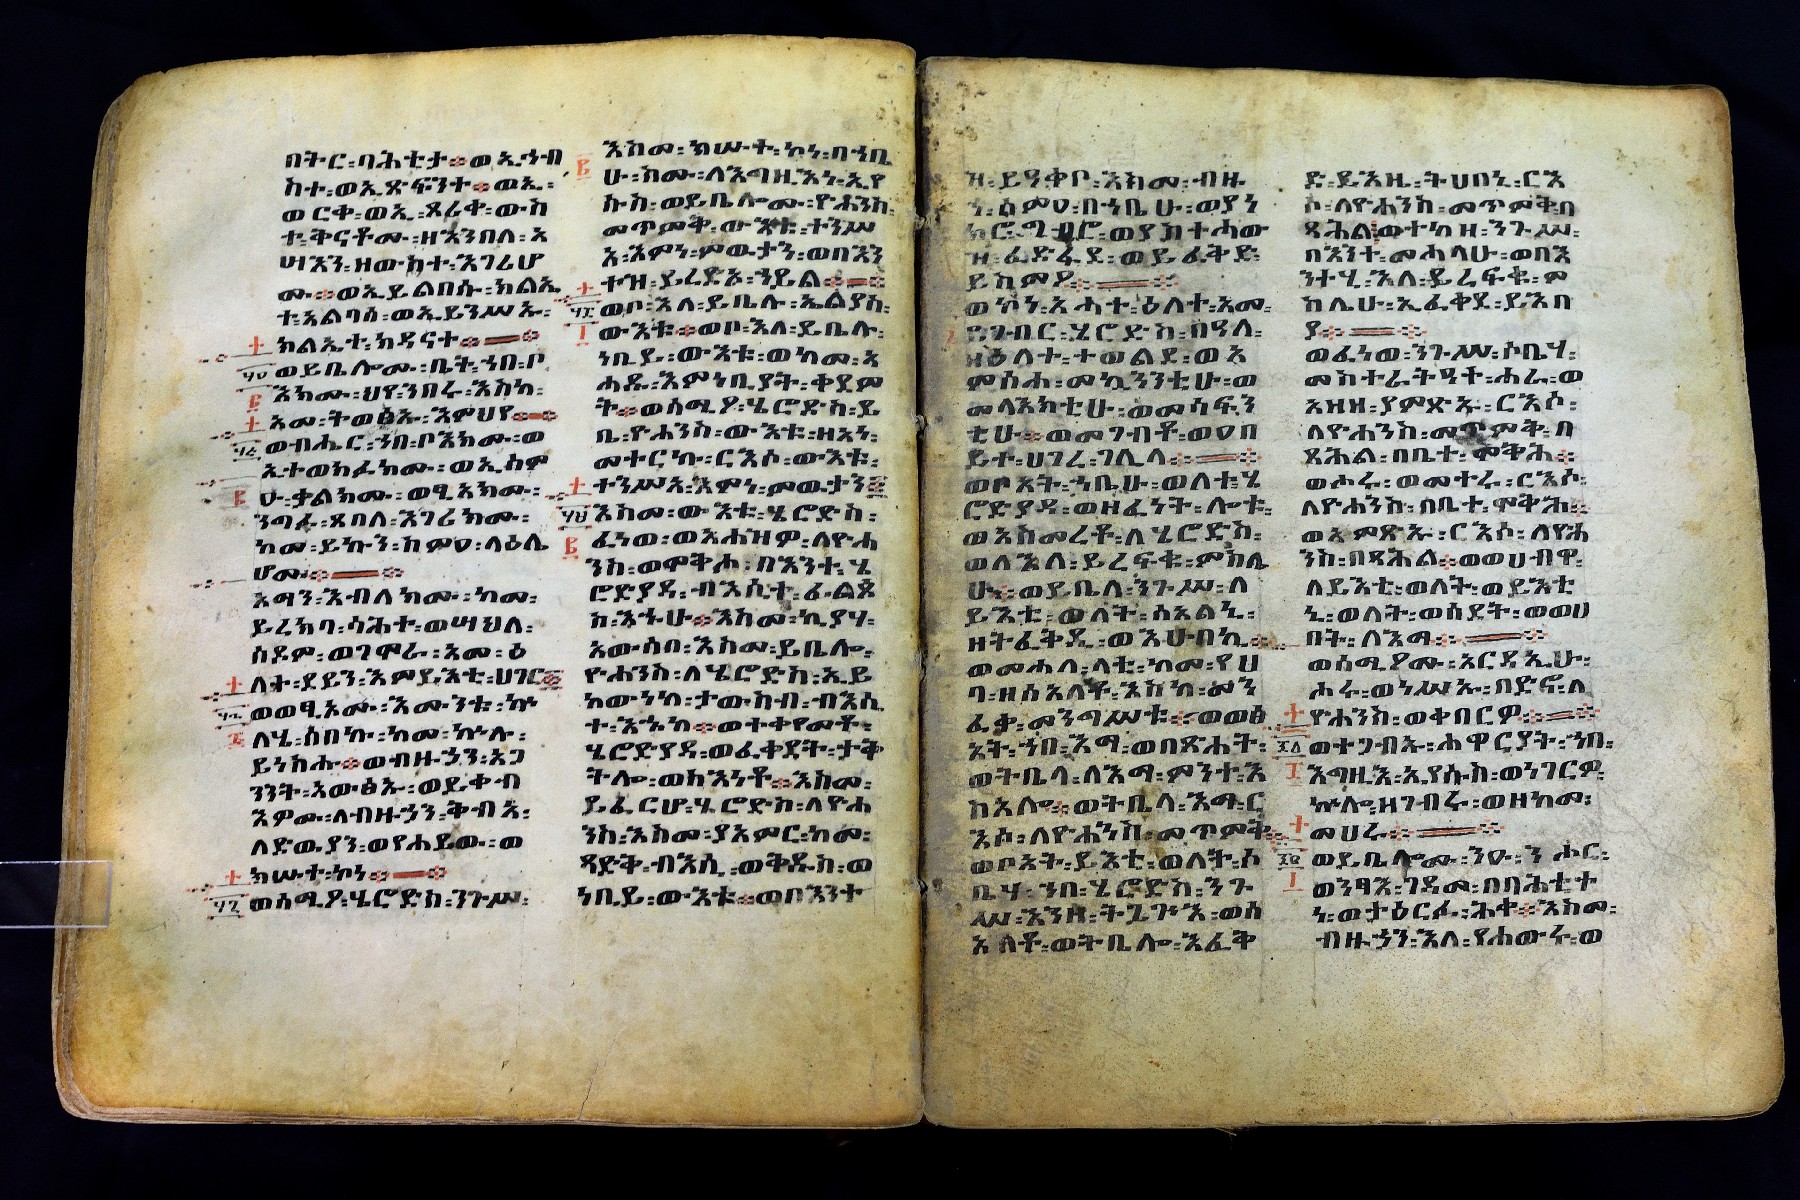 በትር፡ባሕቲታ፨ወኢኀብ
ስተ፡ወኢጽፍንተ፨ወኢ፡
ወርቀ፡ወኢ፡ጸሪቀ፡ውስ
ተ፡ቅናቶሙ፡ዘእንበለ፡አ
ሣእን፡ዘውስተ፡እገሪሆ
ሙ፨ወኢይልበሱ፡ክልኤ
ተ፡አልባሰ፡ወኢይንሥኡ፡
ክልኤተ፡ክዳናተ፨
ወይቤሎሙ፡ቤት፡ኀበ፡ቦ
እክሙ፡ህየ፡ንበሩ፡እስከ፡
አመ፡ትወፅኡ፡እምህየ፨
ወብሔር፡ኀበ፡ቦእክሙ፡ወ
ኢተወክፈክሙ፡ወኢሰም
ሁ፡ቃልክሙ፡ወፂአክሙ፡
ንግፉ፡ጸበለ፡እገሪክሙ፡
ከመ፡ይኩን፡ስምዐ፡ላዕሌ
ሆሙ፨
አማን፡እብለክሙ፡ከመ፡
ይረክባ፡ሳሕተ፡ወሣህለ፡
ሰዶም፡ወገሞራ፡አመ፡ዕ
ለተ፡ደይን፡እምይእቲ፡ሀገር፨
ወወፂኦሙ፡እሙንቱ፡ኵ
ለሄ፡ሰበኩ፡ከመ፡ኵሉ፡
ይነስሑ፨ወብዙኃን፡አጋ
ንንት፡አውፅኡ፡ወይቀብ
እዎሙ፡ለብዙኃን፡ቅብአ፡
ለድዉያን፡ወየሐይዉ፡ወ
ክሡተ፡ኮነ፨
ወሰሚዖ፡ሄሮድስ፡ንጉሥ፡
እስመ፡ክሡተ፡ኮነ፡በኀቤ
ሁ፡ስሙ፡ለእግዚአነ፡ኢየ
ሱስ፡ወይቤሎሙ፡ዮሐንስ፡
መጥምቅ፡ውእቱ፡ተንሥ
አ፡እምነ፡ምዉታን፡ወበእን
ተዝ፡ይረድኦ፡ኀይል፨
ወቦ፡እለ፡ይቤሉ፡ኤልያስ፡
ውእቱ፨ወቦ፡እለ፡ይቤሉ፡
ነቢይ፡ውእቱ፡ወከመ፡አ
ሐዱ፡እምነቢያት፡ቀደም
ት፨ወሰሚዖ፡ሄሮድስ፡ይ
ቤ፡ዮሐንስ፡ውእቱ፡ዘአነ፡
መተርኩ፡ርእሶ፡ውእቱ፡
ተንሥአ፡እምነ፡ምዉታን፨
እስመ፡ውእቱ፡ሄሮድስ፡
ፈነወ፡ወአሐዝዎ፡ለዮሐ
ንስ፡ወሞቅሖ፡በእንተ፡ሄ
ሮድያዳ፡ብእሲተ፡ፊልጶ
ስ፡እኁሁ፨እስመ፡ኪያሃ፡
አውሰበ፡እስመ፡ይቤሎ፡
ዮሐንስ፡ለሄሮድስ፡ኢይ
ከውነከ፡ታውስብ፡ብእሲ
ተ፡እኁከ፨ወትቀየመቶ፡
ሄሮድያዳ፡ወፈቀደት፡ታቅ
ትሎ፡ወስእነቶ፨እስመ፡
ይፈርሆ፡ሄሮድስ፡ለዮሐ
ንስ፡እስመ፡ያአምር፡ከመ፡
ጻድቅ፡ብእሲ፡ወቅዱስ፡ወ
ነቢይ፡ውእቱ፨ወበእንተ
ዝ፡ይዓቀቦ፡እስመ፡ብዙ
ኀ፡ሰምዐ፡በኀቤሁ፡ወያነ
ክር፡ግብሮ፡ወያስተሓው
ዝ፡ፈድፋደ፡ወይፈቅድ፡
ይስምዖ፨
ወኮነ፡አሐተ፡ዕለተ፡አመ፡
ይገብር፡ሄሮድስ፡በዓለ፡
ዘዕለተ፡ተወልደ፡ወአ
ምሰሐ፡መኳንንቲሁ፡ወ
መላእክቲሁ፡ወመሳፍን
ቲሁ፨ወመገብቶ፡ወዐበ
ይተ፡ሀገረ፡ገሊላ፨
ወቦአት፡ኀቤሁ፡ወለተ፡ሄ
ሮድያዳ፡ወዘፈነት፡ሎቱ፡
ወአስመረቶ፡ለሄሮድስ፡
ወለእለ፡ይረፍቁ፡ምስሌ
ሁ፨ወይቤላ፡ንጉሥ፡ለ
ይእቲ፡ወለት፡ሰአልኒ፡
ዘትፈቅዲ፡ወእሁበኪ፨
ወመሐለ፡ላቲ፡ከመ፡የሀ
ባ፡ዘሰአለቶ፡እስከ፡መን
ፈቃ፡መንግሥቱ፨ወወፅ
አት፡ኀበ፡እማ፡ወበጽሐት፡
ወትቤላ፡ለእማ፡ምንተ፡እ
ስአሎ፨ወትቤላ፡እማ፡ር
እሶ፡ለዮሐንስ፡መጥምቅ፨
ወቦአት፡ይእቲ፡ወለት፡ሶ
ቤሃ፡ኀበ፡ሄሮድስ፡ንጉ
ሥ፡እንዘ፡ትጔጕእ፡ወሰ
አለቶ፡ወትቤሎ፡እፈቅ
ድ፡ይእዜ፡ትሀበኒ፡ርእ
ሶ፡ለዮሐንስ፡መጥምቅ፡በ
ጻሕል፡ወተከዘ፡ንጉሥ፡
በእንተ፡መሐላሁ፡ወበእ
ንተሂ፡እለ፡ይረፍቁ፡ም
ስሌሁ፡ኢፈቀደ፡ይእበ
ያ፨
ወፈነወ፡ንጉሥ፡ሶቤሃ፡
መስተራትዓተ፡ሐራ፡ወ
አዘዘ፡ያምጽኡ፡ርእሶ፡
ለዮሐንስ፡መጥምቅ፡በ
ጻሕል፡በቤተ፡ሞቅሕ፨
ወሖሩ፡ወመተሩ፡ርእሶ፡
ለዮሐንስ፡በቤተ፡ሞቅሕ፨
ወአምጽኡ፡ርእሶ፡ለዮሐ
ንስ፡በጻሕል፨ወወሀብዋ፡
ለይእቲ፡ወለት፡ወይእቲ
ኒ፡ወለት፡ወሰደት፡ወወሀ
በት፡ለእማ፨
ወሰሚዖሙ፡አርዳኢሁ፡
ሖሩ፡ወነሥኡ፡በድኖ፡ለ
ዮሐንስ፡ወቀበርዎ፨
ወተጋብኡ፡ሐዋርያት፡ኀበ፡
እግዚእ፡ኢየሱስ፡ወነገርዎ፡
ኵሎ፡ዘገብሩ፡ወዘከመ፡
መሀሩ፨
ወይቤሎሙ፡ንዑ፡ንሖር፡
ወንፃእ፡ገዳመ፡በባሕቲተ
ነ፡ወታዕርፉ፡ሕቀ፨እስመ፡
ብዙኃን፡እለ፡የሐውሩ፡ወ